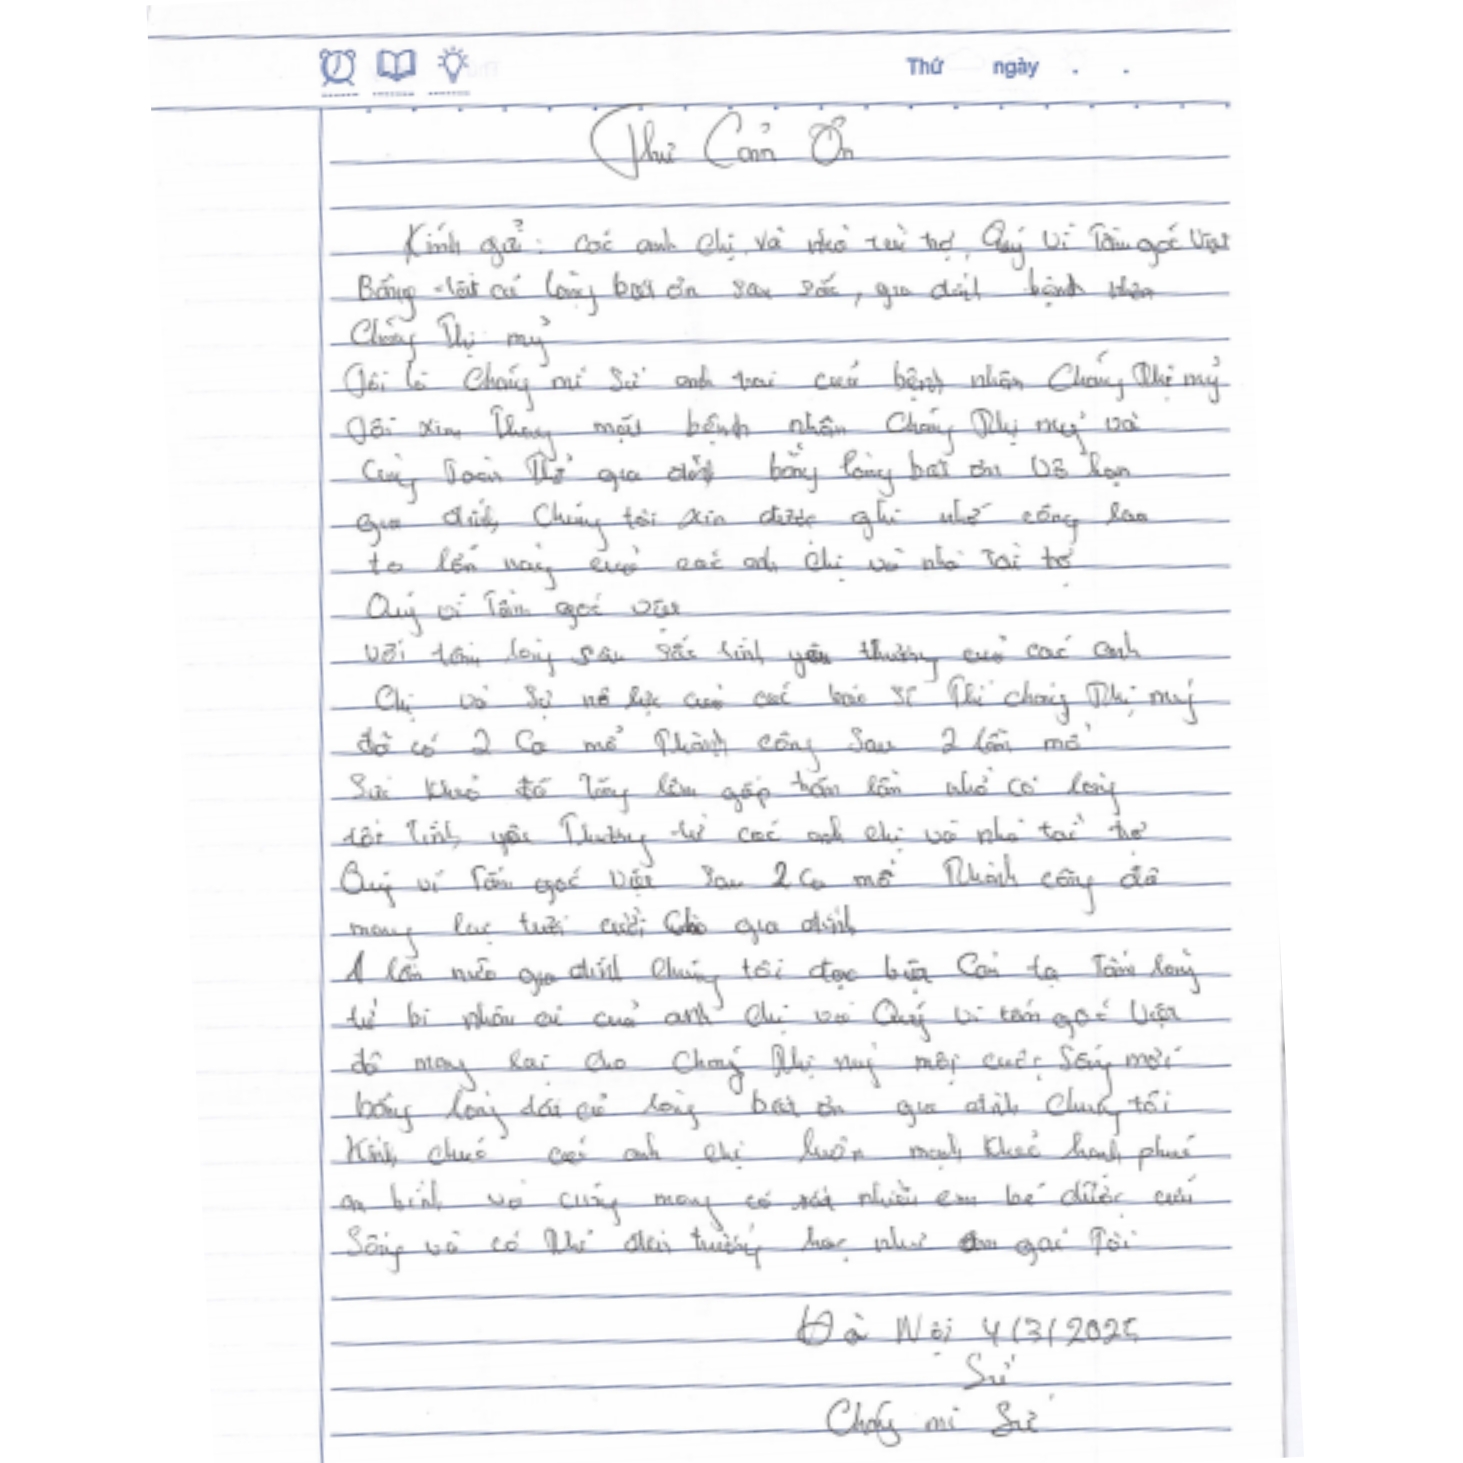 Thứ ngày . .
Thư Cảm Ơn
Kính gửi: các anh chị và nhà tài trợ, Quý Vì Tầm gốc Việt
Bằng tất cả lòng biết ơn sâu sắc, gia đình bệnh nhân
Chấng Thị mỷ
Tôi là Chấng mí Sử anh trai cuả bệnh nhân Chấng Thị mỷ
Tôi xin Thay mặt bệnh nhân Chấng Thị mỷ và
cùng Toàn Thể gia đình bằng lòng biết ơn vô hạn
gia đình Chúng tôi xin được ghi nhớ công lao
to lớn này cuả các anh chị và nhà Tài trợ
Quý vì Tầm gốc việt
với tấm lòng sâu sắc tình yêu thương cuả các anh
Chị và Sự nỗ lực cuả các bác sĩ Thì chấng Thị mỷ
đã có 2 Ca mổ Thành công Sau 2 lần mổ
Sức khoẻ đã Tăng lên gấp trăm lần nhờ có lòng
tốt Tình yêu Thương từ các anh chị và nhà tài trợ
Quý vì Tầm gốc Việt Sau 2 Ca mổ Thành công đã
mang lại tười cười cho gia đình
1 lần nữa gia đình Chúng tôi đặc biệt Cảm tạ Tấm lòng
từ bi nhân ái cuả anh chị và Quý vì tầm gốc Việt
đã mang lại cho Chấng Thị mỷ một cuộc Sống mới
bằng lòng tất cả lòng biết ơn gia đình Chúng tôi
Kính chúc các anh chị luôn mạnh khoẻ hạnh phúc
an bình và cũng mong có rất nhiều em bé được cứu
Sống và có Thể đến trường học như em gái Tôi
Hà Nội 4/3/2025
Sử
Chấng mí Sử